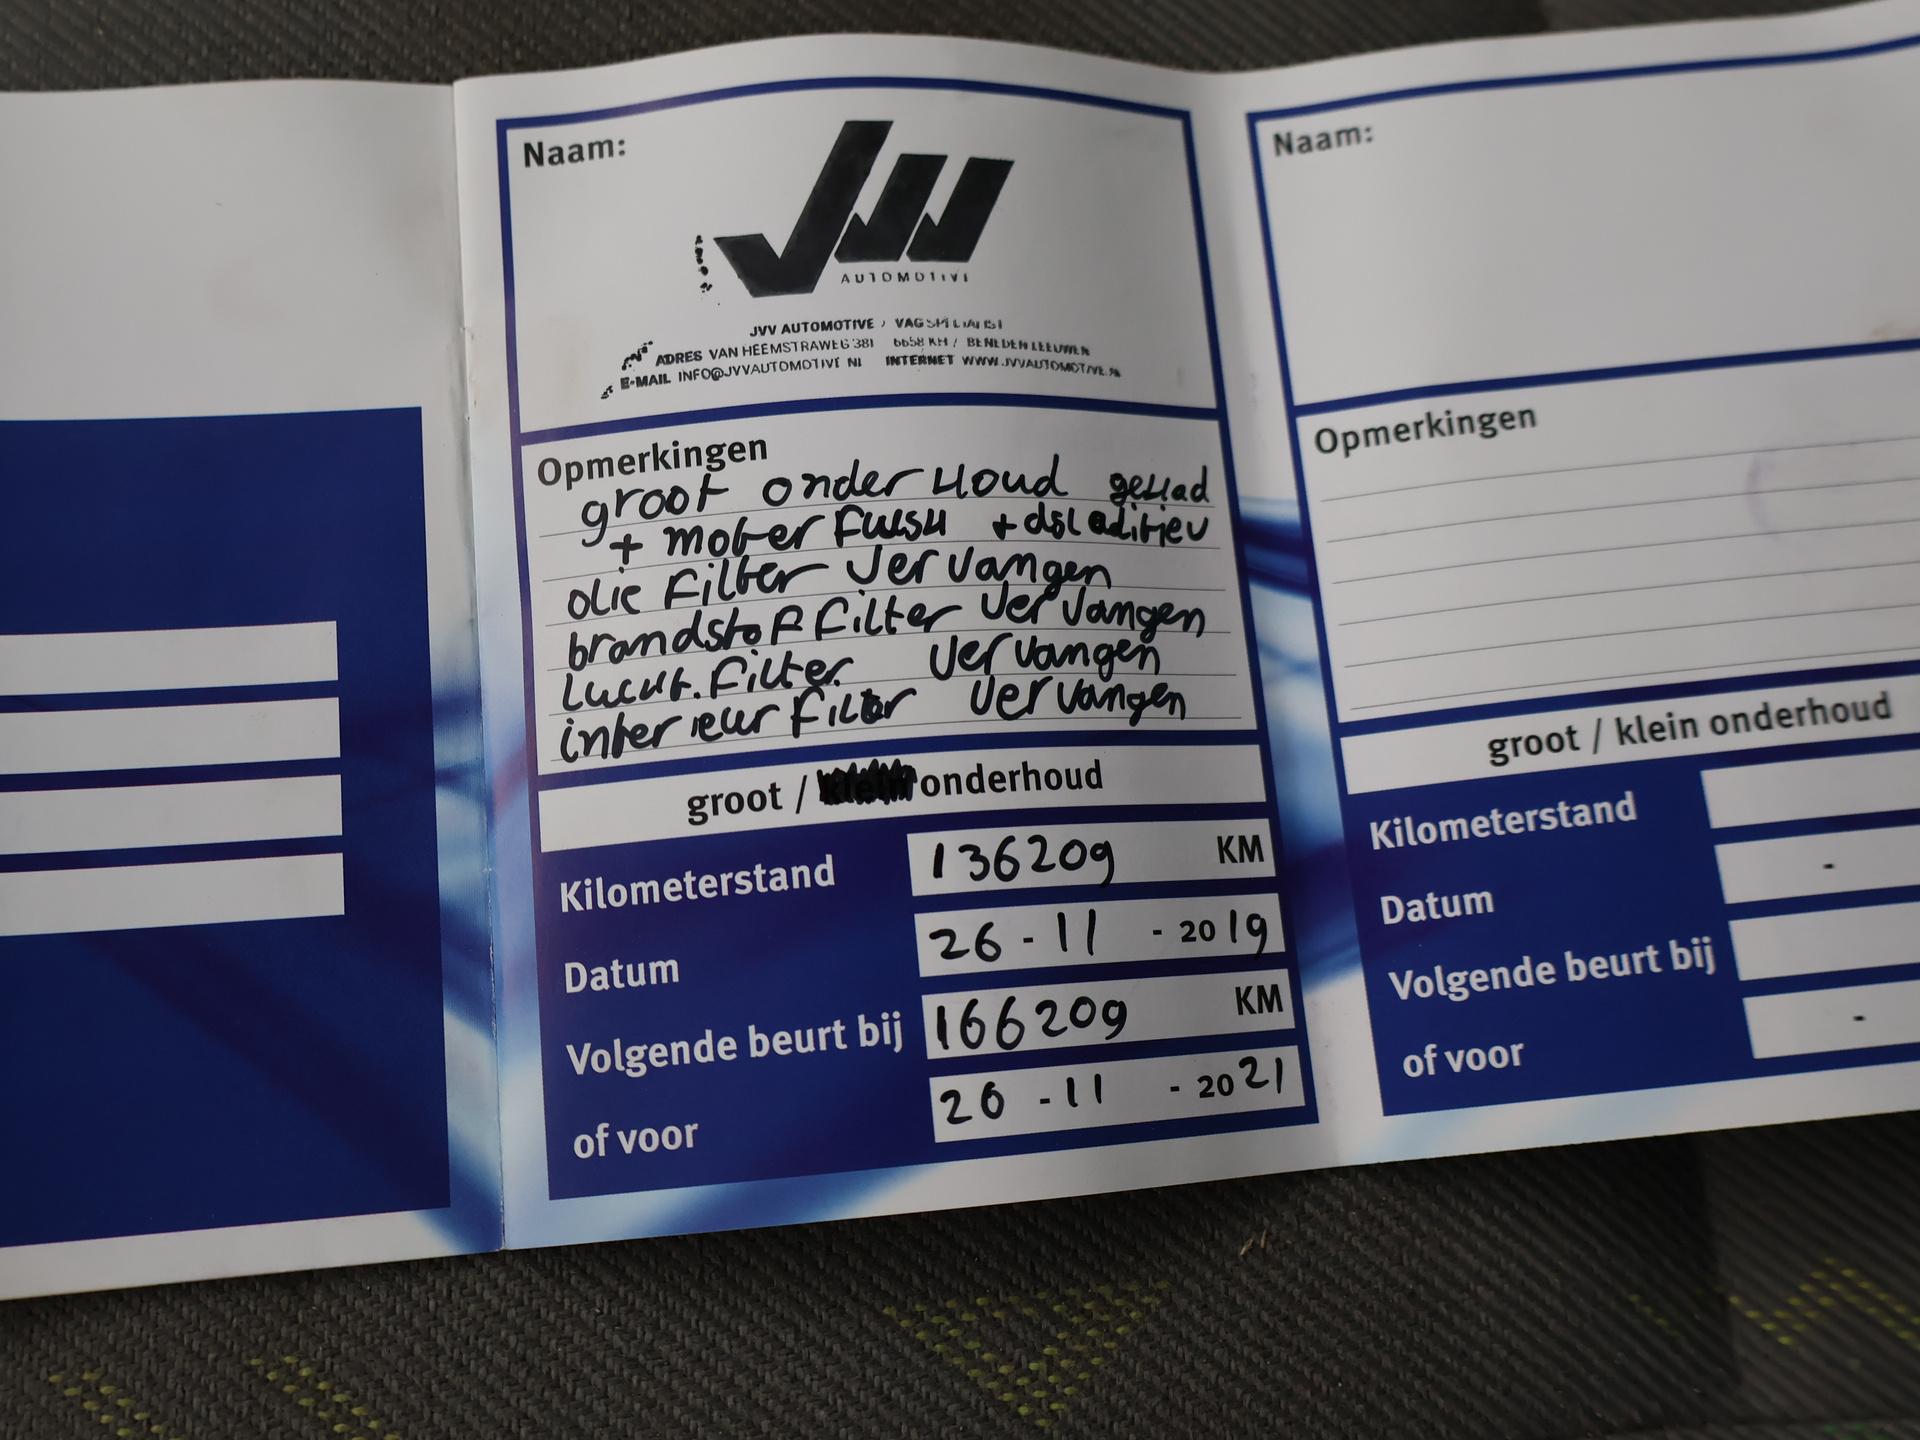 Naam:
JVV
AUTOMOTIVE
JVV AUTOMOTIVE / VAG SPECIALIST
ADRES VAN HEEMSTRAWEG 381 6658 KH / BENEDEN LEEUWEN
E-MAIL INFO@JVVAUTOMOTIVE.NL INTERNET WWW.JVVAUTOMOTIVE.NL
Opmerkingen
groot onderHoud geHad
+ moter FlusH + dsl aditiev
olie Filter Vervangen
brandstof Filter Vervangen
LucHt.Filter Vervangen
interieur Filter Vervangen
groot / klein onderhoud
Kilometerstand 136209 KM
Datum 26 - 11 - 2019
Volgende beurt bij 166209 KM
of voor 26 - 11 - 2021
Naam:
Opmerkingen
groot / klein onderhoud
Kilometerstand
Datum -
Volgende beurt bij
of voor -